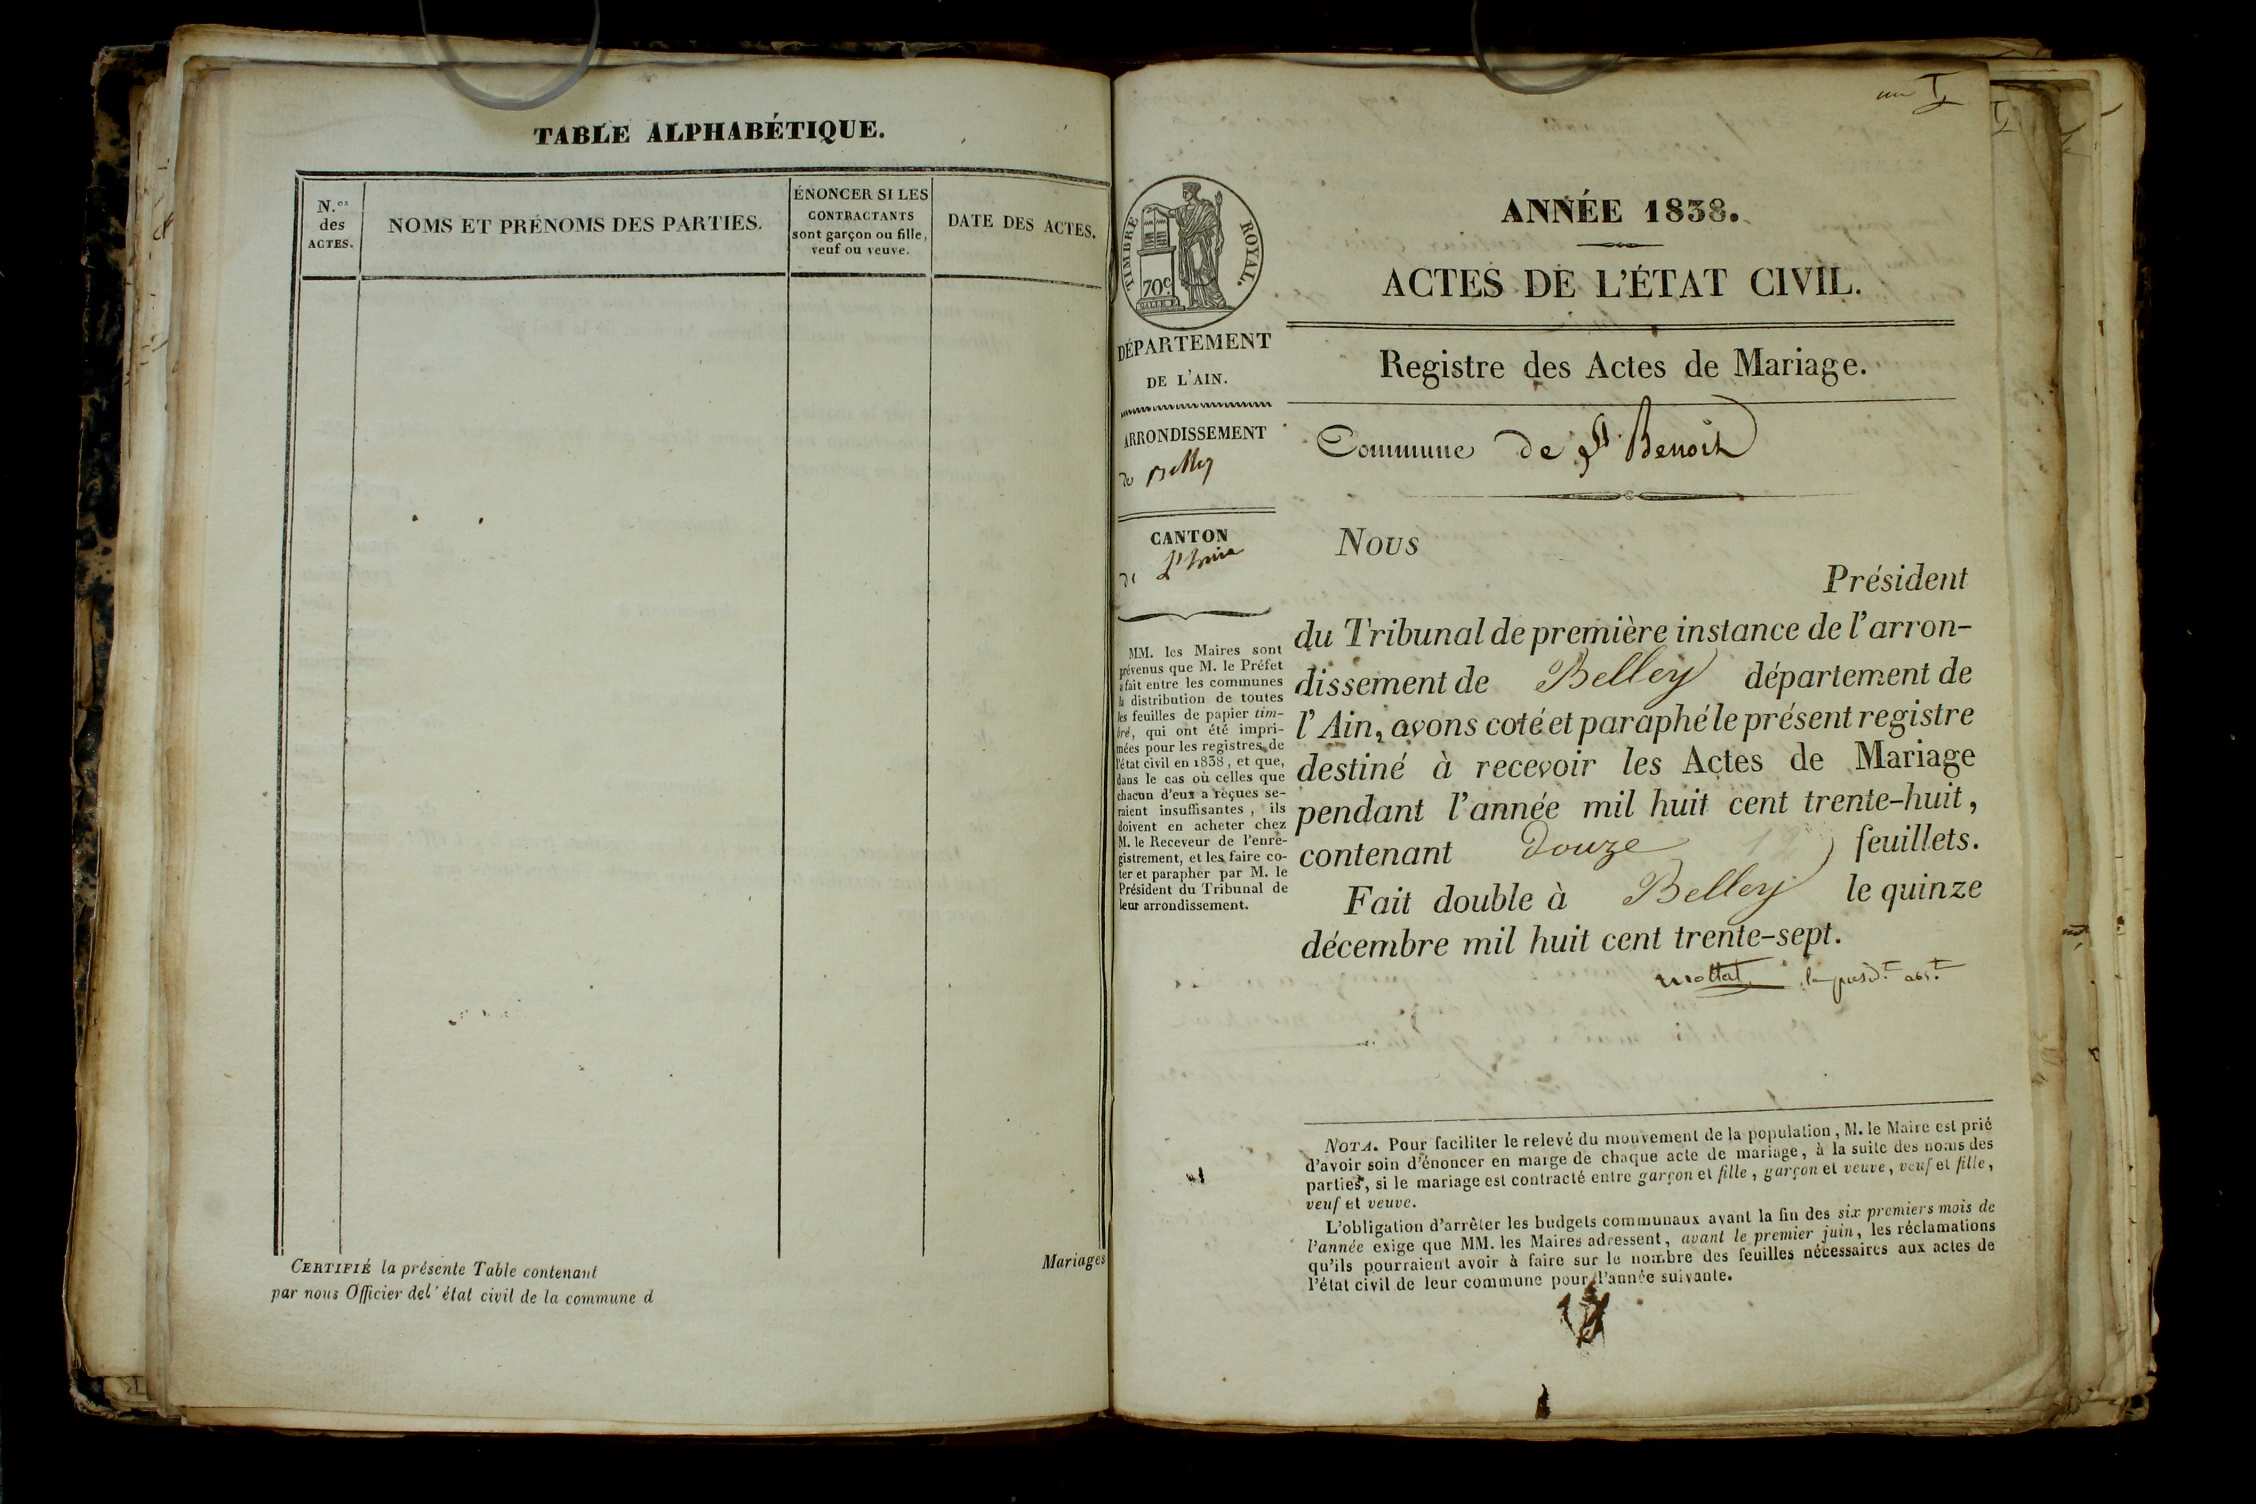 TABLE ALPHABÉTIQUE.
N.os
des
ACTES.
NOMS ET PRÉNOMS DES PARTIES.
ÉNONCER SI LES
CONTRACTANTS
sont garçon ou fille,
veuf ou veuve.
DATE DES ACTES.
CERTIFIÉ la présente Table contenant
par nous Officier de l'état civil de la commune d
Mariages
un 1
TIMBRE ROYAL.
70c
DÉPARTEMENT
DE L'AIN.
ARRONDISSEMENT
de Belley
CANTON
de
MM. les Maires sont
prévenus que M. le Préfet
a fait entre les communes
la distribution de toutes
les feuilles de papier tim-
bré, qui ont été impri-
mées pour les registres de
l'état civil en 1838, et que,
dans le cas où celles que
chacun d'eux a reçues se-
raient insuffisantes, ils
doivent en acheter chez
M. le Receveur de l'enre-
gistrement, et les faire co-
ter et parapher par M. le
Président du Tribunal de
leur arrondissement.
ANNÉE 1838.
ACTES DE L'ÉTAT CIVIL.
Registre des Actes de Mariage.
Commune de St Benoit
Nous
Président
du Tribunal de première instance de l'arron-
dissement de Belley département de
l'Ain, avons coté et paraphé le présent registre
destiné à recevoir les Actes de Mariage
pendant l'année mil huit cent trente-huit,
contenant Douze 12 feuillets.
Fait double à Belley le quinze
décembre mil huit cent trente-sept.
NOTA. Pour faciliter le relevé du mouvement de la population, M. le Maire est prié
d'avoir soin d'énoncer en marge de chaque acte de mariage, à la suite des noms des
parties, si le mariage est contracté entre garçon et fille, garçon et veuve, veuf et fille,
veuf et veuve.
L'obligation d'arrêter les budgets communaux avant la fin des six premiers mois de
l'année exige que MM. les Maires adressent, avant le premier juin, les réclamations
qu'ils pourraient avoir à faire sur le nombre des feuilles nécessaires aux actes de
l'état civil de leur commune pour l'année suivante.